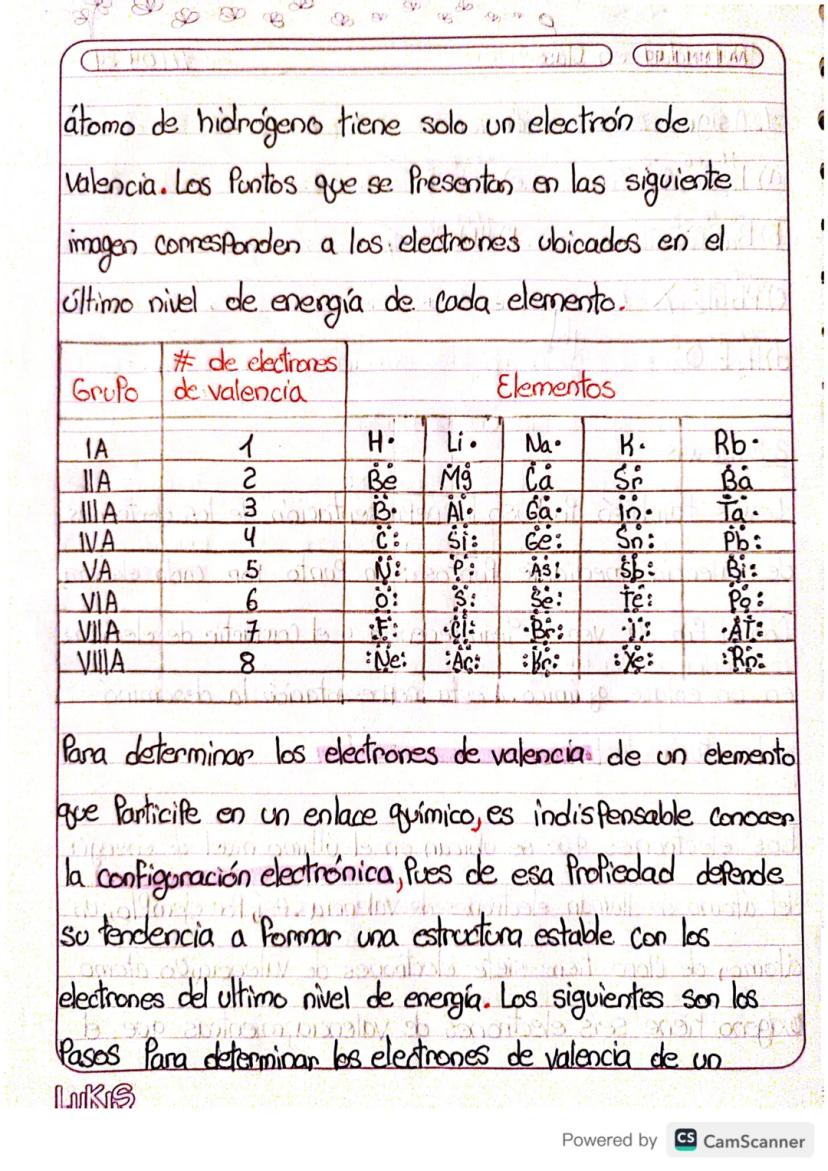 átomo de hidrógeno tiene solo un electrón de
Valencia. Los Puntos que se Presentan en las siguiente
imagen corresponden a los electrones ubicados en el
último nivel de energía de cada elemento.
Grupo # de electrones de valencia Elementos
IA 1 H· Li· Na· K· Rb·
IIA 2 Be Mg Ca Sr Ba
IIIA 3 B· Al· Ga· in· Ta·
IVA 4 C: Si: Ge: Sn: Pb:
VA 5 N: P: As: Sb: Bi:
VIA 6 O: S: Se: Te: Po:
VIIA 7 :F: ·Cl: ·Br: ·I: ·At:
VIIIA 8 :Ne: :Ar: :Kr: :Xe: :Rn:
Para determinar los eléctrones de valencia de un elemento
que Participe en un enlace químico, es indispensable conocer
la configuración electrónica, Pues de esa Propiedad depende
su tendencia a formar una estructura estable con los
electrones del ultimo nivel de energía. Los siguientes son los
Pasos Para determinar los electrones de valencia de un
LuKiS
Powered by CS CamScanner